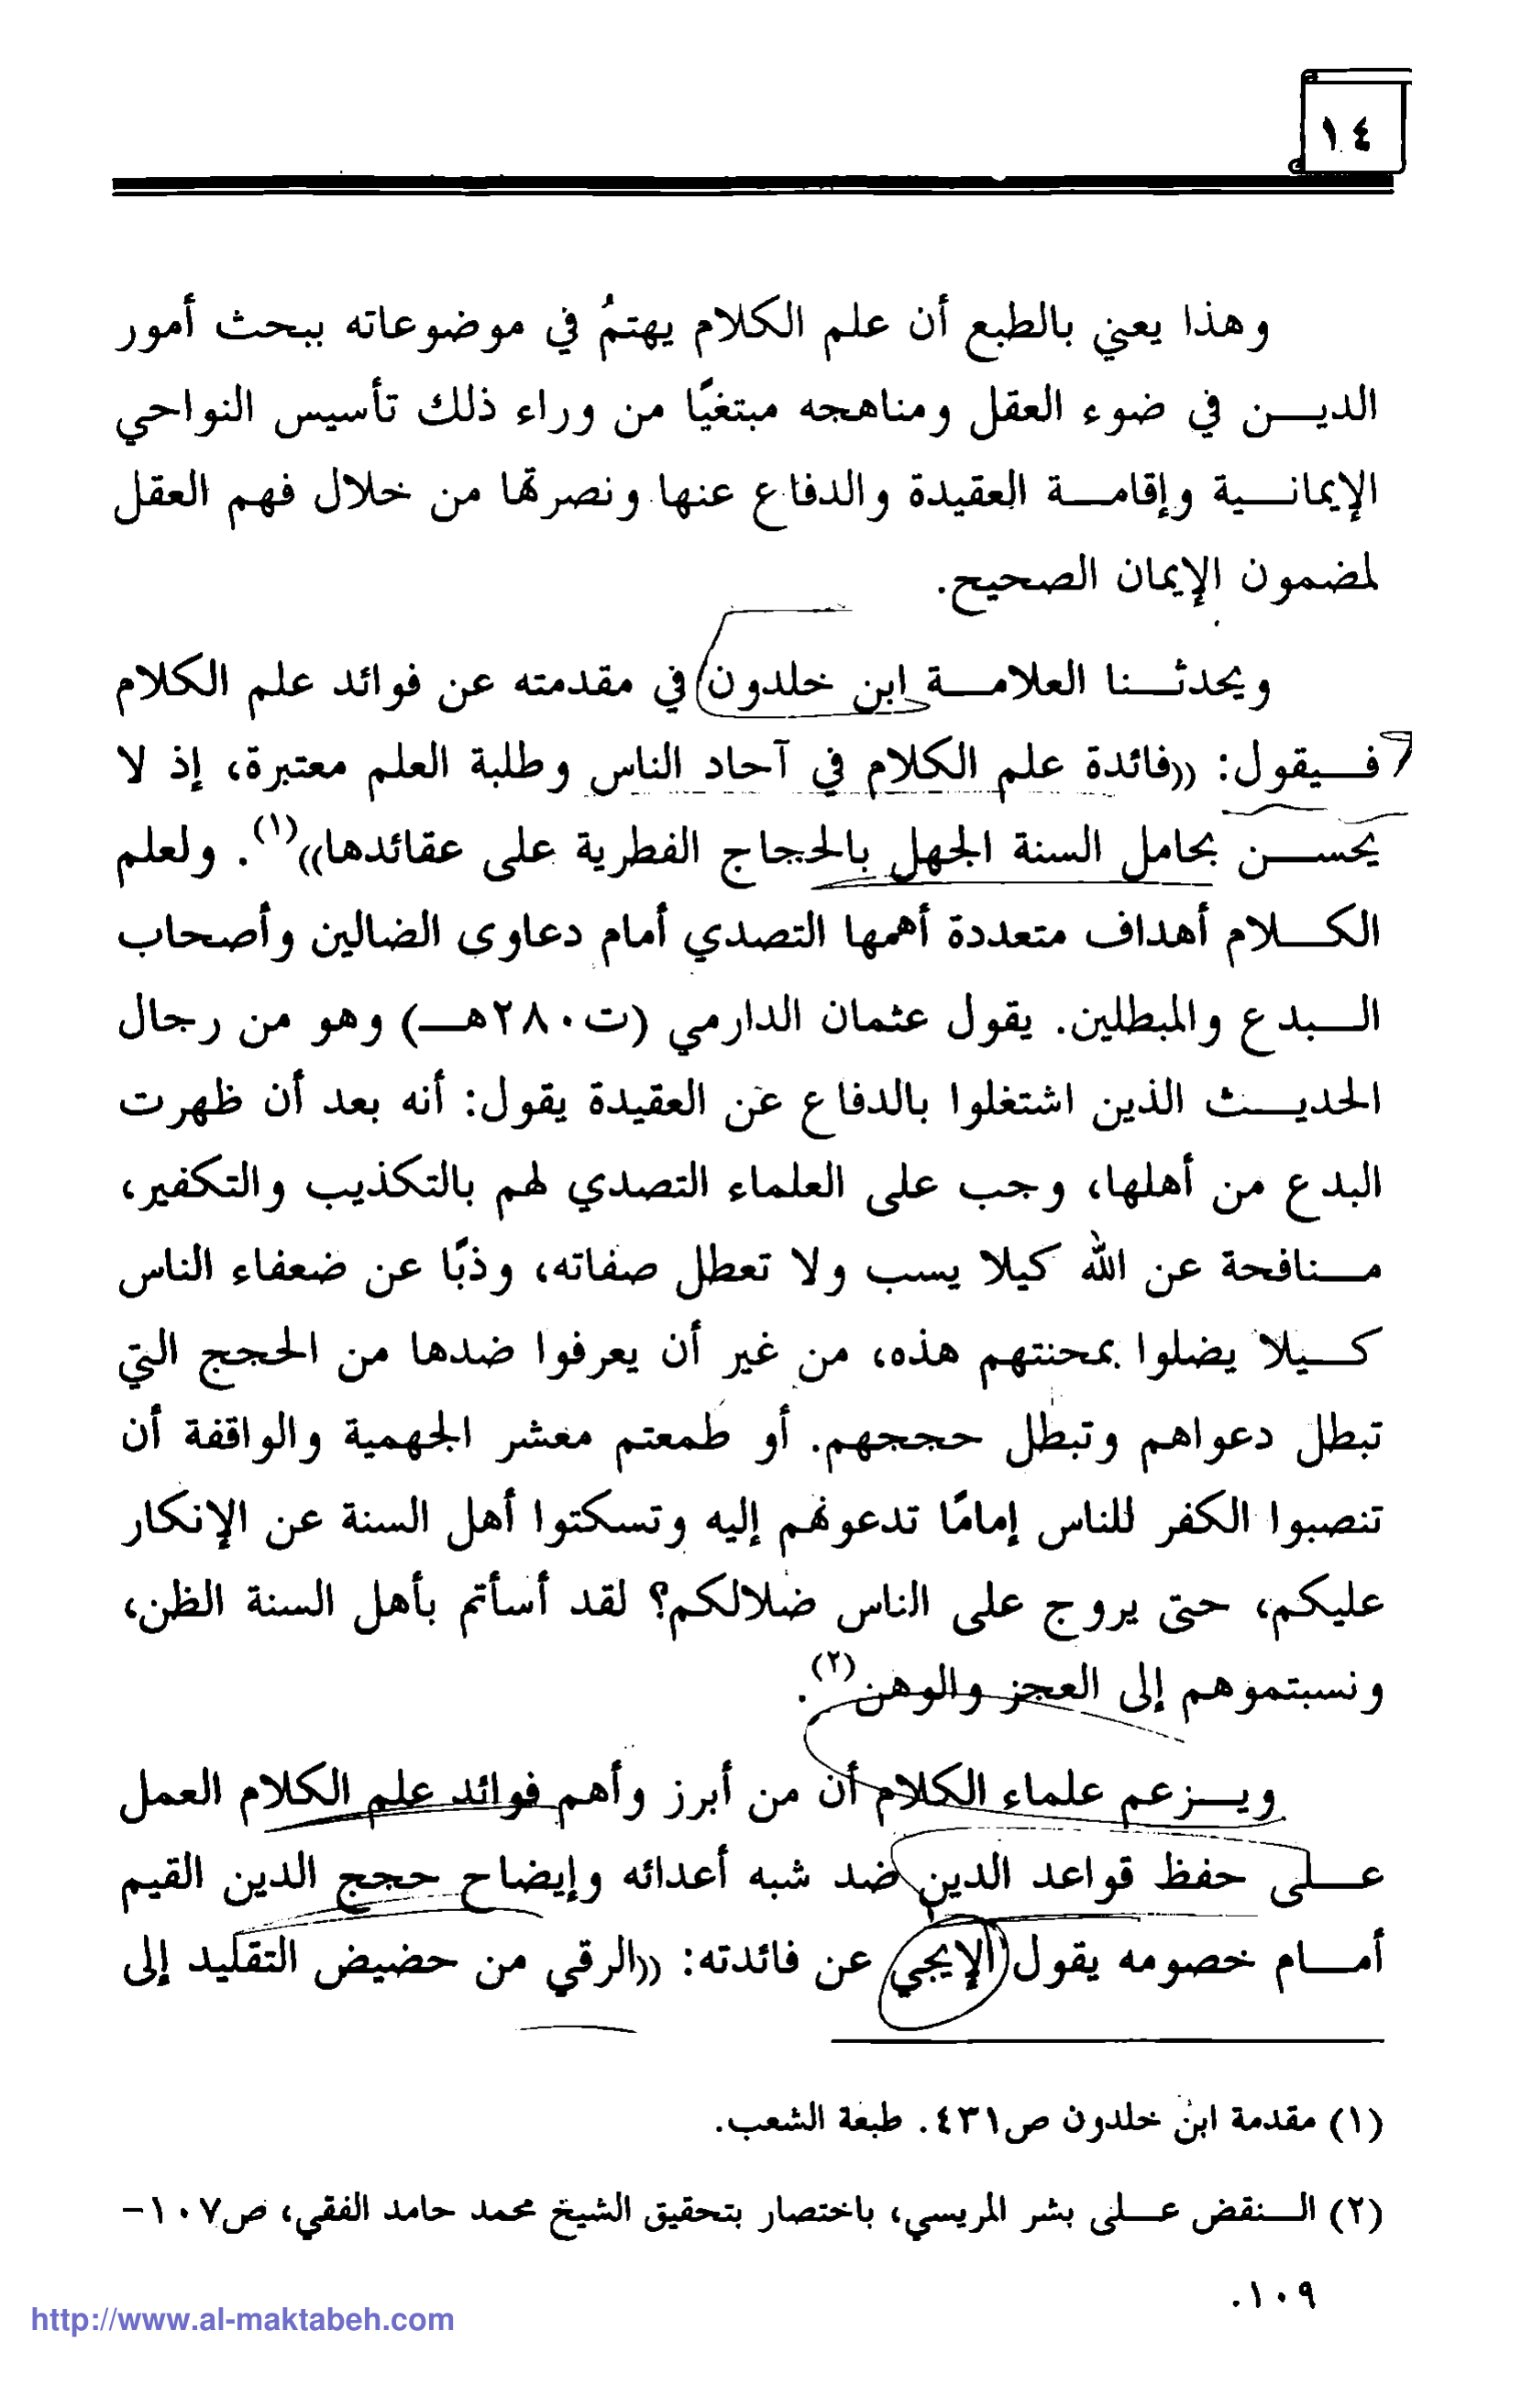 ١٤
وهذا يعني بالطبع أن علم الكلام يهتمُ في موضوعاته ببحث أمور
الديـــن في ضوء العقل ومناهجه مبتغيًا من وراء ذلك تأسيس النواحي
الإيمانـــية وإقامـــة العقيدة والدفاع عنها ونصرتها من خلال فهم العقل
لمضمون الإيمان الصحيح.
ويحدثـــنا العلامـــة ابن خلدون في مقدمته عن فوائد علم الكلام
فـــيقول: ((فائدة علم الكلام في آحاد الناس وطلبة العلم معتبرة، إذ لا
يحســـن بحامل السنة الجهل بالحجاج الفطرية على عقائدها))(١). ولعلم
الكـــلام أهداف متعددة أهمها التصدي أمام دعاوى الضالين وأصحاب
الـــبدع والمبطلين. يقول عثمان الدارمي (ت٢٨٠هـــ) وهو من رجال
الحديـــث الذين اشتغلوا بالدفاع عن العقيدة يقول: أنه بعد أن ظهرت
البدع من أهلها، وجب على العلماء التصدي لهم بالتكذيب والتكفير،
مـــنافحة عن الله كيلا يسب ولا تعطل صفاته، وذبًا عن ضعفاء الناس
كـــيلا يضلوا بمحنتهم هذه، من غير أن يعرفوا ضدها من الحجج التي
تبطل دعواهم وتبطل حججهم. أو طمعتم معشر الجهمية والواقفة أن
تنصبوا الكفر للناس إمامًا تدعونهم إليه وتسكتوا أهل السنة عن الإنكار
عليكم، حتى يروج على الناس ضلالكم؟ لقد أسأتم بأهل السنة الظن،
ونسبتموهم إلى العجز والوهن(٢).
ويـــزعم علماء الكلام أن من أبرز وأهم فوائد علم الكلام العمل
عـــلى حفظ قواعد الدين ضد شبه أعدائه وإيضاح حجج الدين القيم
أمـــام خصومه يقول الإيجي عن فائدته: ((الرقي من حضيض التقليد إلى
(١) مقدمة ابن خلدون ص٤٣١. طبعة الشعب.
(٢) الـــنقض عـــلى بشر المريسي، باختصار بتحقيق الشيخ محمد حامد الفقي، ص١٠٧-
١٠٩.
http://www.al-maktabeh.com